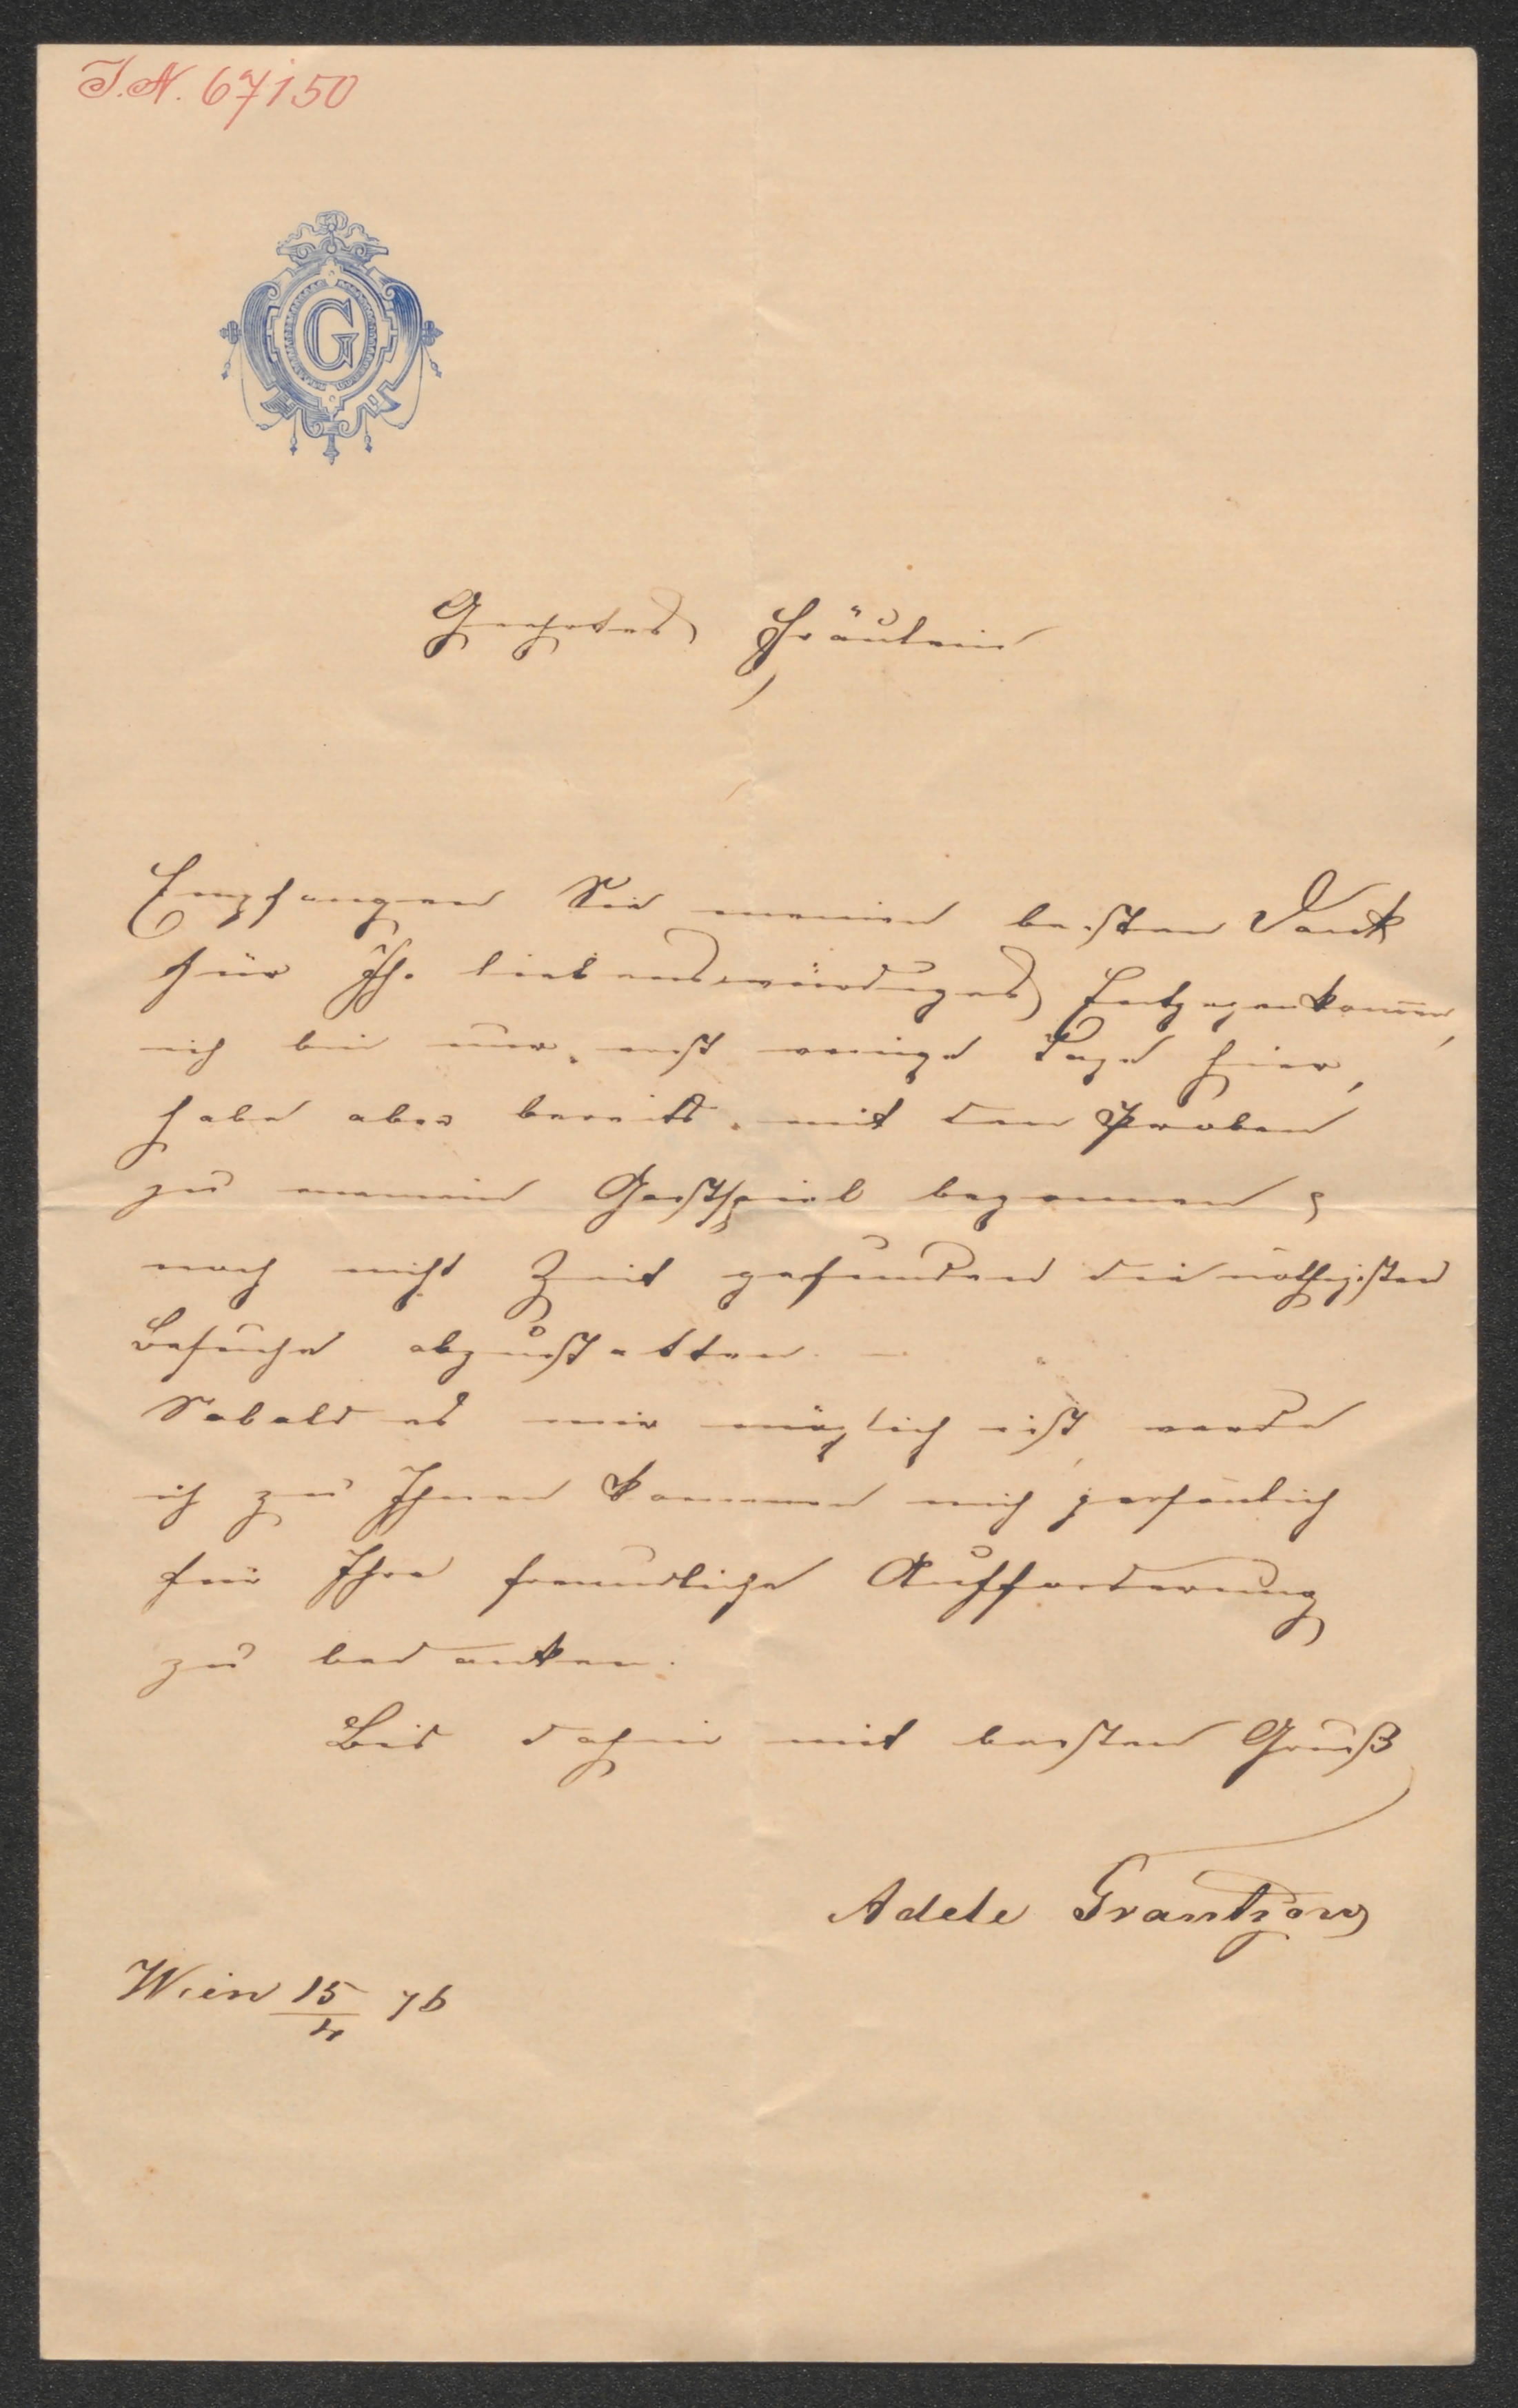 I.N. 67150
G
Geehrtes Fräulein
Empfangen Sie meinen besten Dank
für Ihr liebenswürdiges Entgegenkommen,
ich bin nur erst wenige Tage hier,
habe aber bereits mit den Proben
zu meinem Gastspiel begonnen &
noch nicht Zeit gefunden die nöthigsten
Besuche abzustatten. –
Sobald es mir möglich ist, werde
ich zu Ihnen kommen mich persönlich
für Ihre freundliche Aufforderung
zu bedanken.
Bis dahin mit bestem Gruß
Adele Grantzow
Wien 15/4 76